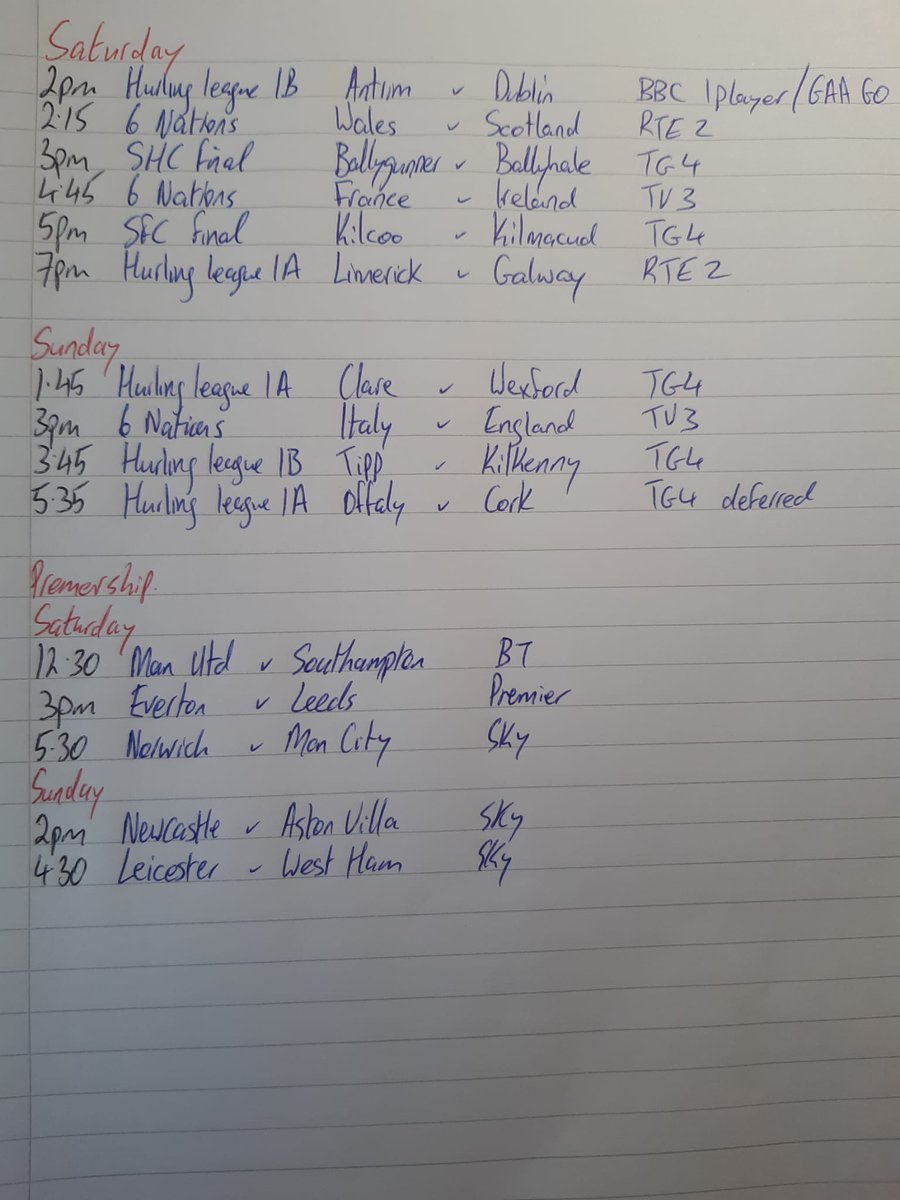 Saturday
2pm Hurling league 1B Antrim v Dublin BBC Iplayer/GAA GO
2.15 6 Nations Wales v Scotland RTE 2
3pm SHC final Ballygunner v Ballyhale TG4
4.45 6 Nations France v Ireland TV3
5pm SFC final Kilcoo v Kilmacud TG4
7pm Hurling league 1A Limerick v Galway RTE 2
Sunday
1.45 Hurling league 1A Clare v Wexford TG4
3pm 6 Nations Italy v England TV3
3.45 Hurling league 1B Tipp v Kilkenny TG4
5.35 Hurling league 1A Offaly v Cork TG4 deferred
Premership.
Saturday
12.30 Man Utd v Southampton BT
3pm Everton v Leeds Premier
5.30 Norwich v Man City Sky
Sunday
2pm Newcastle v Aston Villa Sky
4.30 Leicester v West Ham Sky